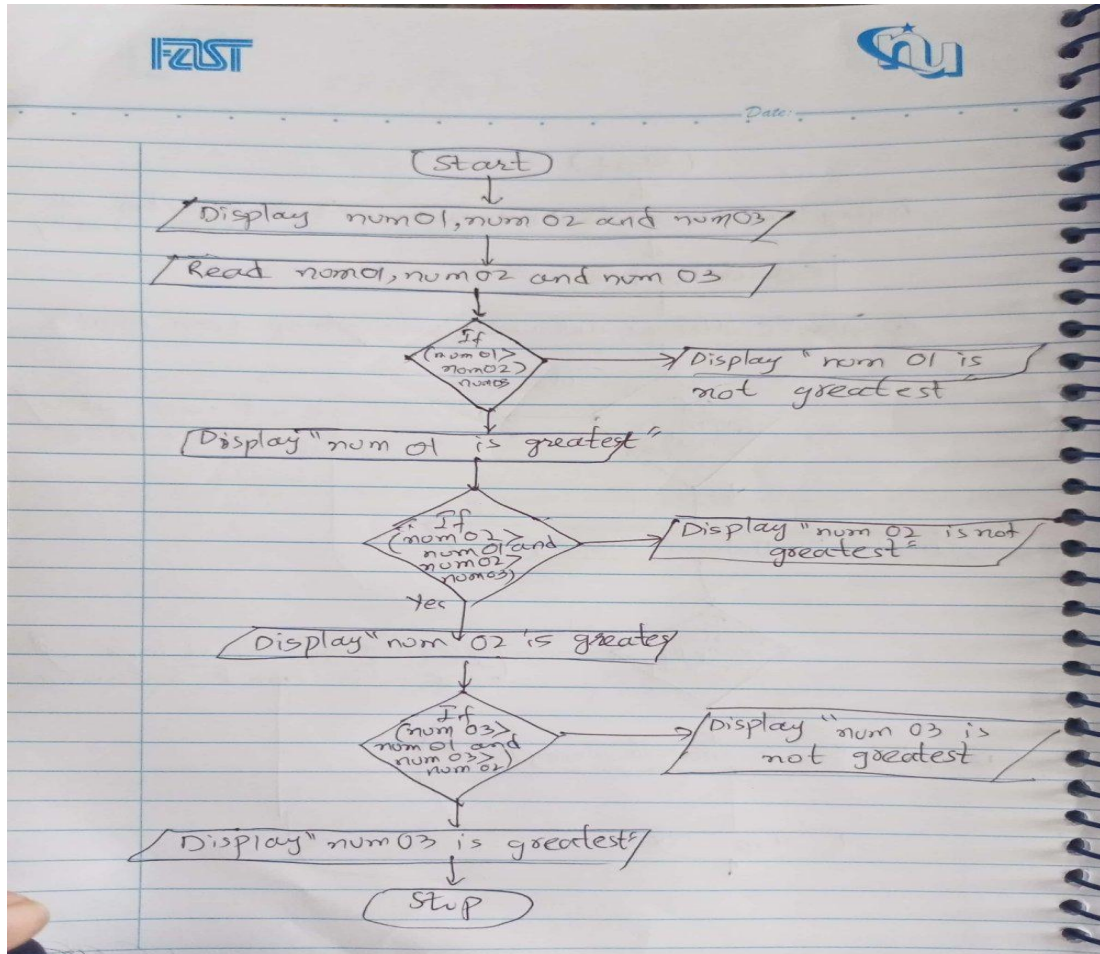 FAST
nu
Date:
Start
Display num01, num 02 and num03
Read num01, num02 and num 03
If
(num 01>
num02>
num03
Display "num 01 is
not greatest"
Display "num 01 is greatest"
If
(num 02>
num 01 and
num02>
num03)
Display "num 02 is not
greatest"
Yes
Display "num 02 is greates
If
(num 03>
num 01 and
num 03>
num 02)
Display "num 03 is
not greatest
Display "num 03 is greatest"
Stop